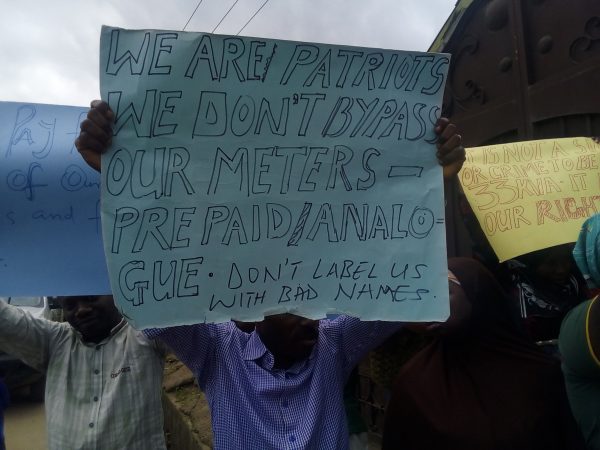 WE ARE PATRIOTS
WE DON'T BYPASS
OUR METERS —
PREPAID/ANALO=
GUE. DON'T LABEL US
WITH BAD NAMES.
Pay
of Our
s and
IS NOT A
OR CRIME TO BE
33KVA. IT
OUR RIGHT